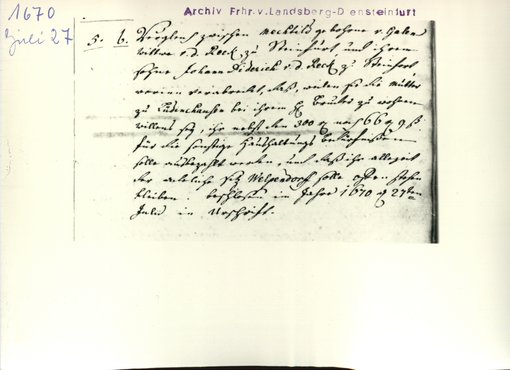 1670
Juli 27
Archiv Frhr.v.Landsberg-Drensteinfurt
5. 6. Vergleich zwischen Mechtild gebohrne v. Galen
Wittwe v.d Reck zu Steinfurt und ihrem
Sohne Johann Diderich v.d Reck zu Steinfort
worinn verabredet, daß, weilen sie die Mutter
zu bei ihrem H. Bruder zu wohnen
willens sey, ihr nebst den 300 noch 66 9 ß
für die sonstige Haushaltungs
solle ausbezahlt werden, und daß ihr allezeit
der adeliche Sitz Welpendorf solle offen stehen
bleiben: beschlossen im Jahre 1670 d 27ten
Juli in Urschrift.